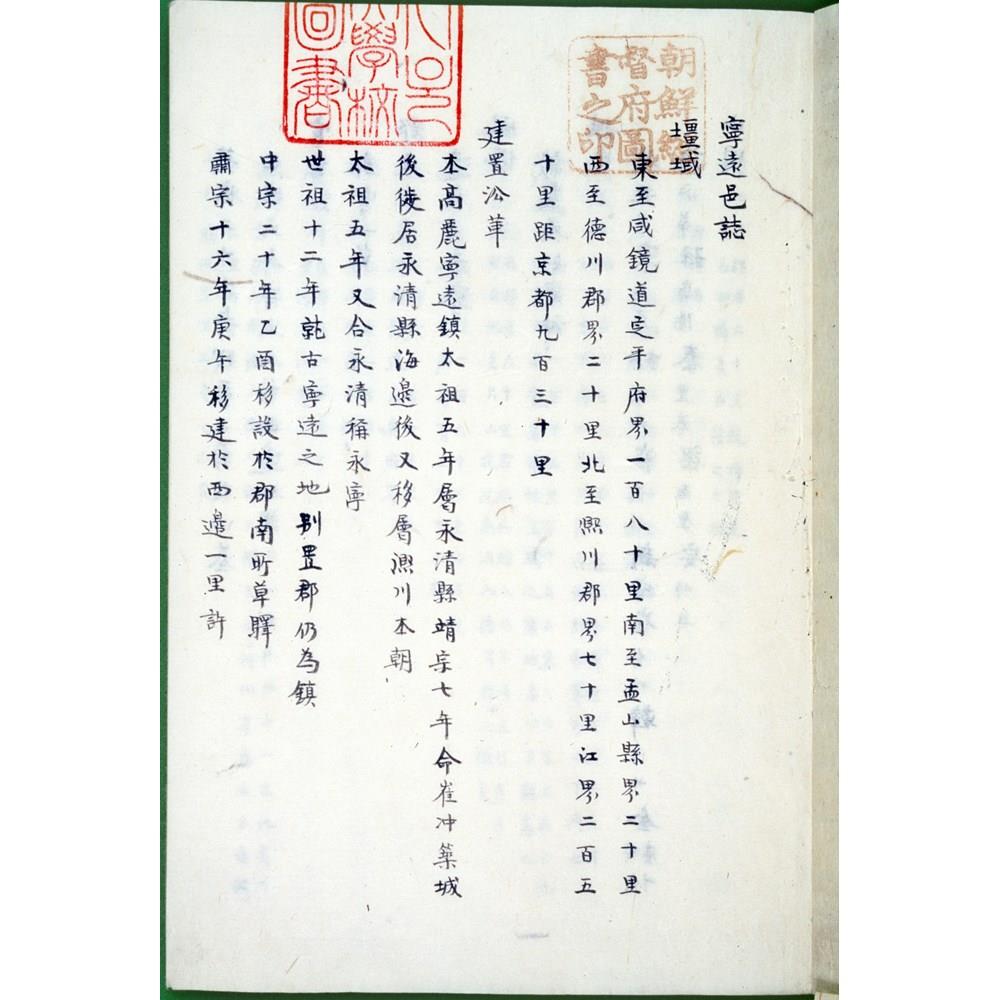 寧遠邑誌
壃域
東至咸鏡道定平府界一百八十里南至孟山縣界二十里
西至德川郡界二十里北至熙川郡界七十里江界二百五
十里距京都九百三十里
建置㳂革
本高麗寧遠鎮太祖五年屬永清縣靖宗七年命崔冲築城
後徙居永清縣海邊後又移屬凞川本朝
太祖五年又合永清稱永寧
世祖十二年就古寧遠之地別置郡仍為鎮
中宗二十年乙酉移設於郡南所草驛
肅宗十六年庚午移建於西邊一里許
朝鮮總
督府圖
書之印
學校
圖書